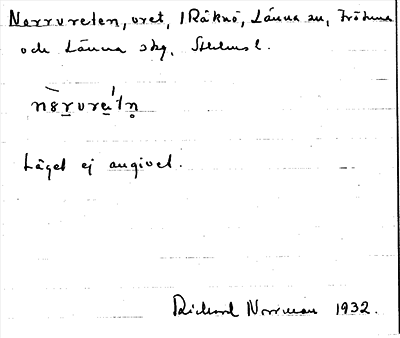 Norrvreten, vret, 1 Råknö, Länna sn, Frötuna
och Länna skg, Sthlms l.
Läget ej angivet.
Richard Norrman 1932.